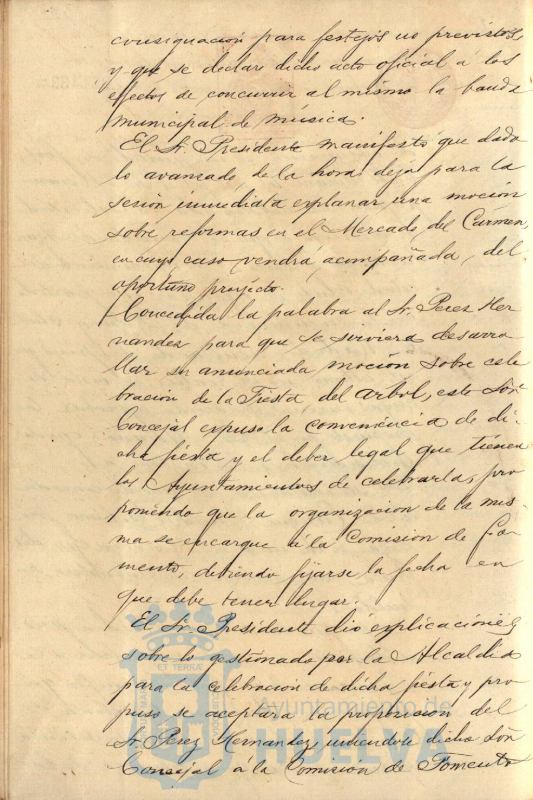 consignación para festejos no previstos,
y que se declare dicho acto oficial á los
efectos de concurrir al mismo la banda
municipal de música.
El Sr. Presidente manifestó que dado
lo avanzado de la hora deja para la
sesión inmediata explanar una moción
sobre reformas en el Mercado del Carmen,
en cuyo caso vendrá acompañada, del
oportuno proyecto.
Concedida la palabra al Sr. Perez Her
nandez para que se sirviera desarro
llar su anunciada moción sobre cele
bración de la Fiesta del arbol, este Sōr.
Concejal expuso la conveniencia de di-
cha fiesta y el deber legal que tienen
los Ayuntamientos de celebrarla, pro
poniendo que la organizacion de la mis-
ma se encargue á la Comision de Fo-
mento, debiendo fijarse la fecha en
que debe tener lugar.
El Sr. Presidente dió explicaciones
sobre lo gestionado por la Alcaldía
para la celebracion de dicha fiesta y pro
puso se aceptara la proposicion del
Sr. Perez Hernandez, uniendose dicho Sōr
Concejal á la Comisión de Fomento
ET TERRÆ
Ayuntamiento de
HUELVA